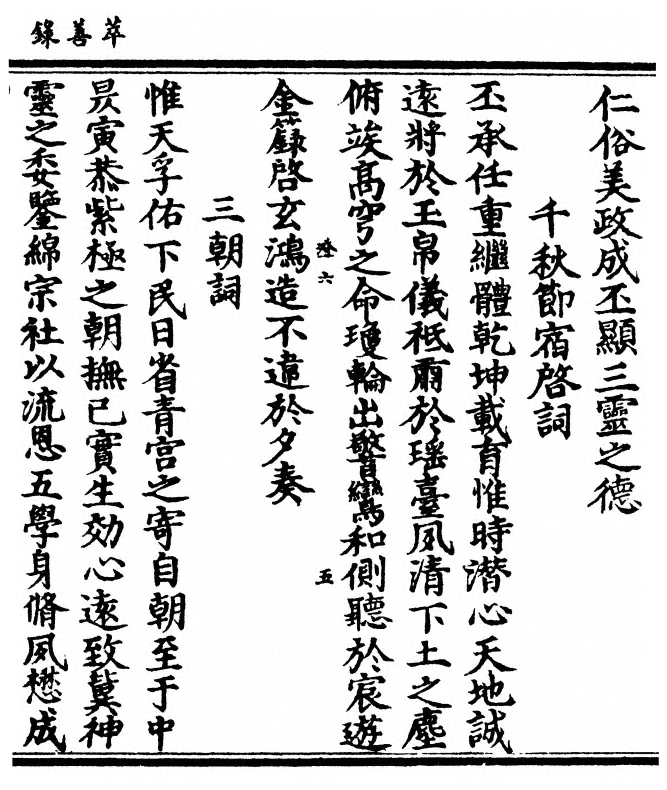 萃善錄
仁俗美政成丕顯三靈之德
千秋節宿啓詞
丕承任重繼體乾坤載育惟時潛心天地誠
遠將於玉帛儀祗薦於瑤臺夙清下土之塵
俯竢高穹之命瓊輪出警鸞和側聽於宸遊
金籙啓玄鴻造不違於夕奏
癹六
五
三朝詞
惟天孚佑下民日省青宮之寄自朝至于中
昃寅恭紫極之朝撫己實生効心遠致冀神
靈之委鑒綿宗社以流恩五學身脩夙懋成